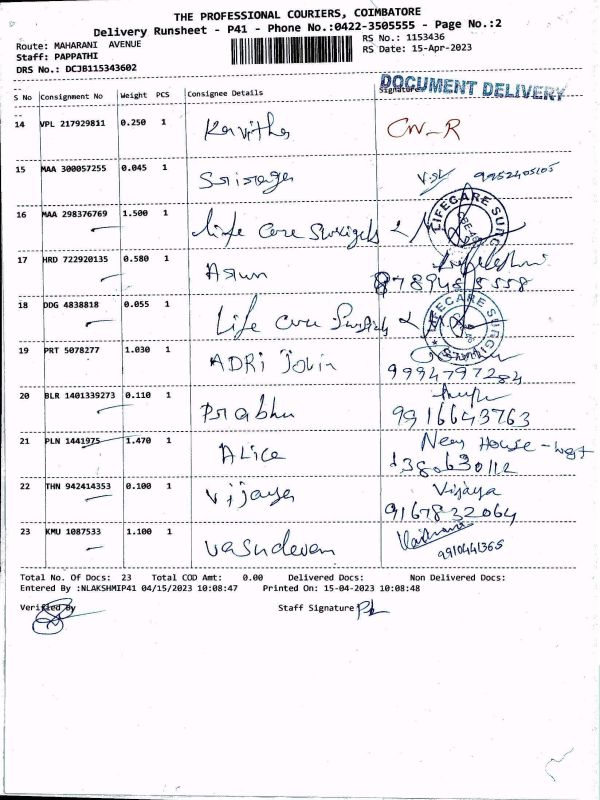 THE PROFESSIONAL COURIERS, COIMBATORE
Delivery Runsheet - P41 - Phone No.:0422-3505555 - Page No.:2
Route: MAHARANI AVENUE RS No.: 1153436
Staff: PAPPATHI RS Date: 15-Apr-2023
DRS No.: DCJB115343602
DOCUMENT DELIVERY
S No Consignment No Weight PCS Consignee Details Signature
14 VPL 217929811 0.250 1 Kavitha
15 MAA 300057255 0.045 1 9952405105
16 MAA 298376769 1.500 1 Life Care Surgicals LIFECARE SURG
17 HRD 722920135 0.580 1 Arun 8789455558
18 DDG 4838818 0.055 1 Life Care LIFECARE SURGI
19 PRT 5078277 1.030 1 ADRI Jobin 9994797284
20 BLR 1401339273 0.110 1 Prabhu 9916643763
21 PLN 1441975 1.470 1 Alice House
22 THN 942414353 0.100 1 Vijaya Vijaya
9167832064
23 KMU 1087533 1.100 1 Vasudevan 9910441365
Total No. Of Docs: 23 Total COD Amt: 0.00 Delivered Docs: Non Delivered Docs:
Entered By :NLAKSHMIP41 04/15/2023 10:08:47 Printed On: 15-04-2023 10:08:48
Verified By Staff Signature